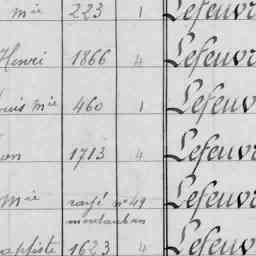 Mie 223 1 Lefeuvr
Henri 1866 4 Lefeuvr
ouis Mie 460 1 Lefeuvr
on 1713 4 Lefeuvr
Mie rayé n° 49 Lefeuvr
montauban
aptiste 1623 4 Lefeuvr